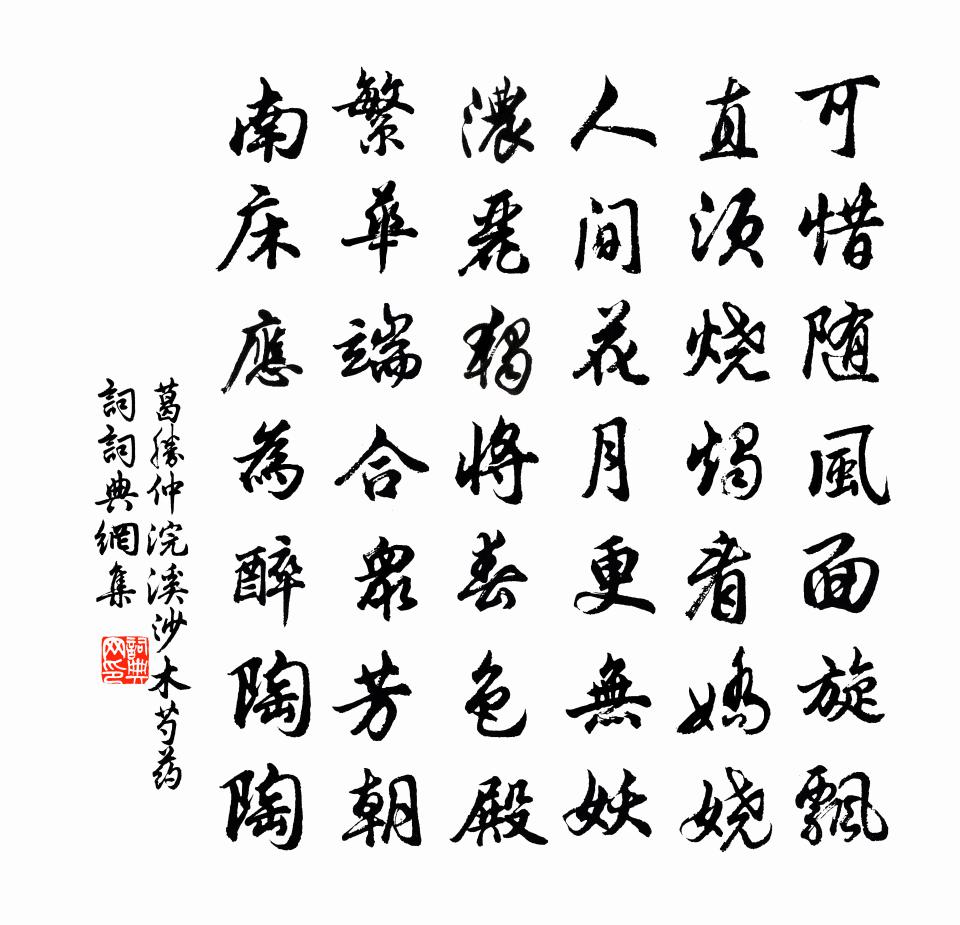 可惜随風面旋飄
直須烧燭看嬌娆
人間花月更無妖
濃麗獨將春色殿
繁華端合衆芳朝
南床應為醉陶陶
葛勝仲浣溪沙木芍药
詞詞典網集
詞典网印